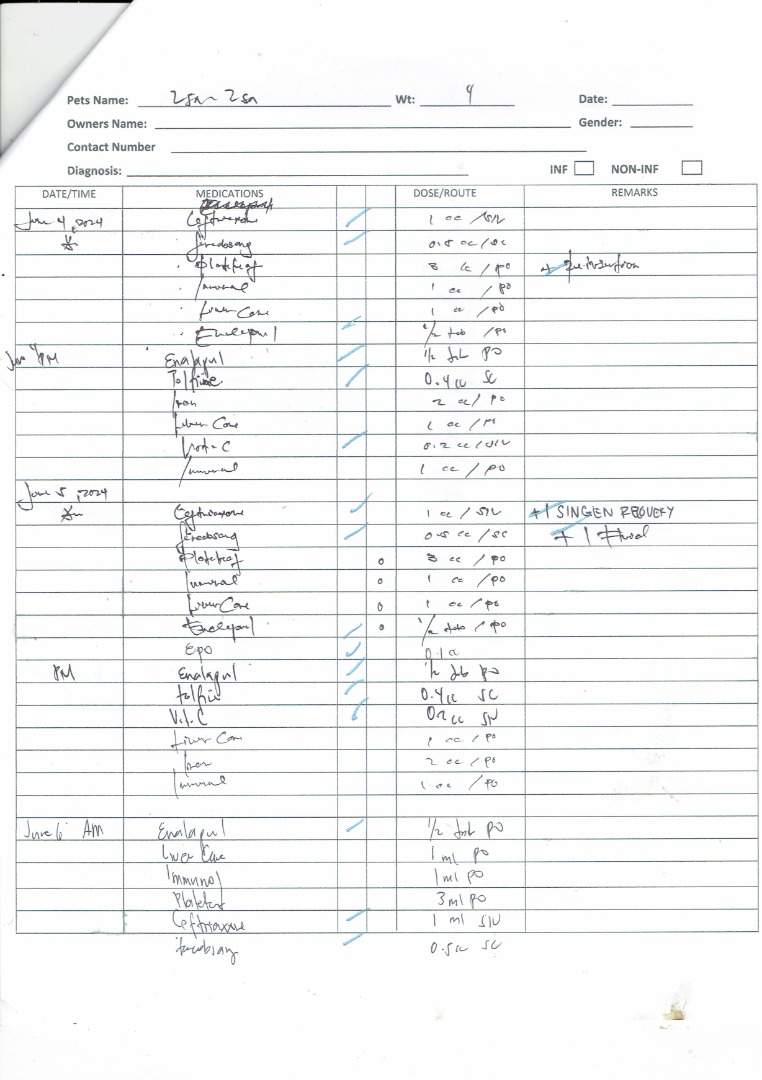 Pets Name: Zsa Zsa Wt: 4 Date:
Owners Name: Gender:
Contact Number
Diagnosis: INF NON-INF
DATE/TIME MEDICATIONS DOSE/ROUTE REMARKS
June 4, 2024 Ceftriaxone 1 cc /SIV
0.5 cc/SC
3 cc /PO
Immunol 1 cc /PO
Liver Care 1 cc /PO
Enalapril 1/2 tab /PO
June 4 PM Enalapril 1/2 tab PO
Tolfine 0.4cc SC
Iron 2 cc/ PO
Liver Care 1 cc / PO
0.2 cc /SIV
Immunol 1 cc /PO
June 5, 2024
Ceftriaxone 1 cc / SIV
0.5 cc / SC
3 cc / PO
Immunol 1 cc / PO
Liver Care 1 cc / PO
Enalapril 1/2 tab / PO
EPO 0.1cc
PM Enalapril 1/2 tab PO
Tolfine 0.4cc SC
Vit. C 0.2cc SIV
Liver Care 1 cc / PO
Iron 2 cc / PO
Immunol 1 cc / PO
June 6 AM Enalapril 1/2 tab PO
Liver Care 1 ml PO
Immunol 1 ml PO
3 ml PO
Ceftriaxone 1 ml SIV
0.5cc SC